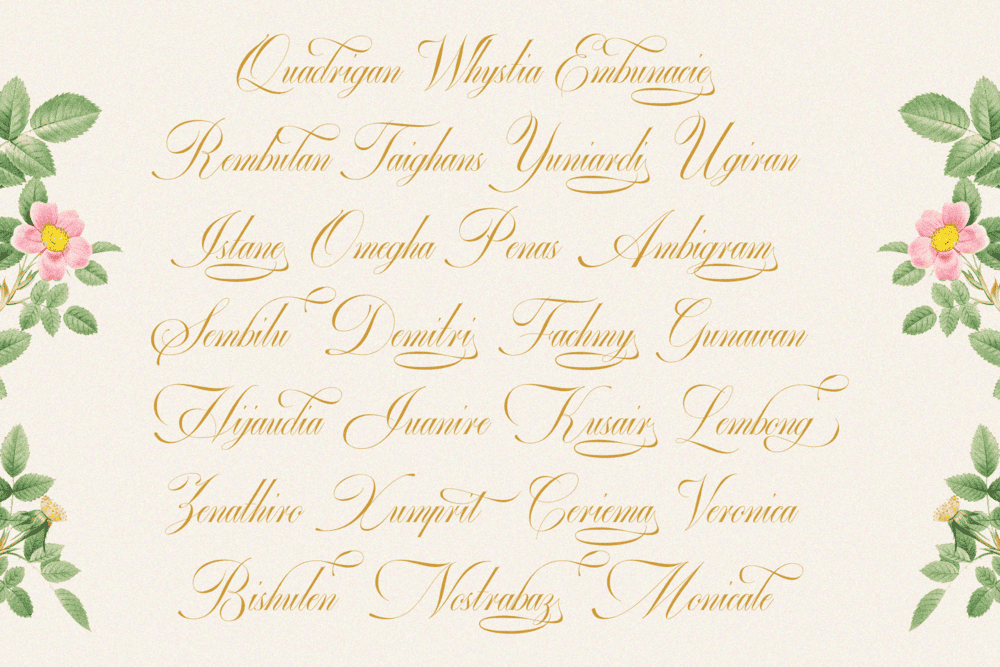 Quadrigan Whystia Embunacie
Rembulan Taighans Yuniardi Ugiran
Istane Omegha Penas Ambigram
Sembilu Demitri Fachmy Gunawan
Hijaudia Juanire Kusair Lembong
Zenathiro Xumprit Ceriema Veronica
Bishulen Nostrabaz Monicate